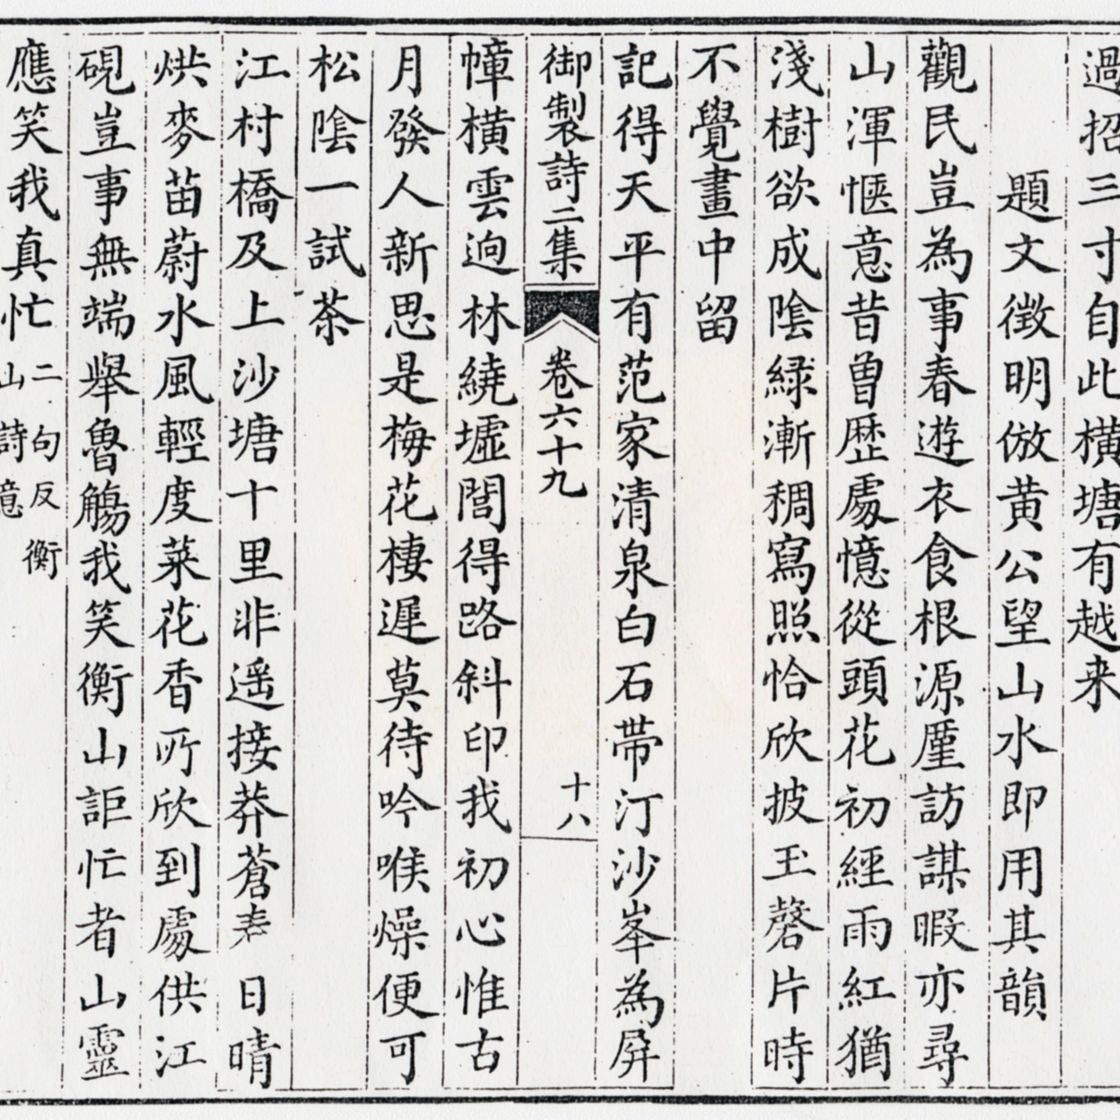 過招三寸自此橫塘有越来
題文徵明倣黄公望山水即用其韻
觀民豈為事春遊衣食根源厪訪謀暇亦尋
山渾愜意昔曾歴處憶從頭花初經雨紅猶
淺樹欲成陰緑漸稠寫照恰欣披玉磬片時
不覺畫中留
記得天平有范家清泉白石帶汀沙峯為屏
御製詩二集 卷六十九 十八
幛横雲逈林繞墟閭得路斜印我初心惟古
月發人新思是梅花棲遲莫待吟喉燥便可
松陰一試茶
江村橋及上沙塘十里非遥接莽蒼春日晴
烘麥苗蔚水風輕度菜花香所欣到處供江
硯豈事無端舉魯觴我笑衡山詎忙者山靈
應笑我真忙二句反衡山詩意